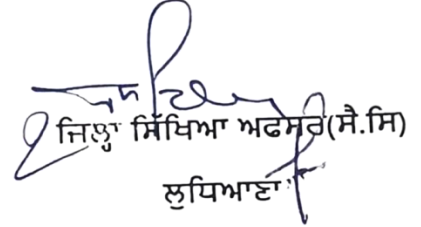 ਜਿਲ੍ਹਾ ਸਿੱਖਿਆ ਅਫਸਰ(ਸੈ.ਸਿ)
ਲੁਧਿਆਣਾ